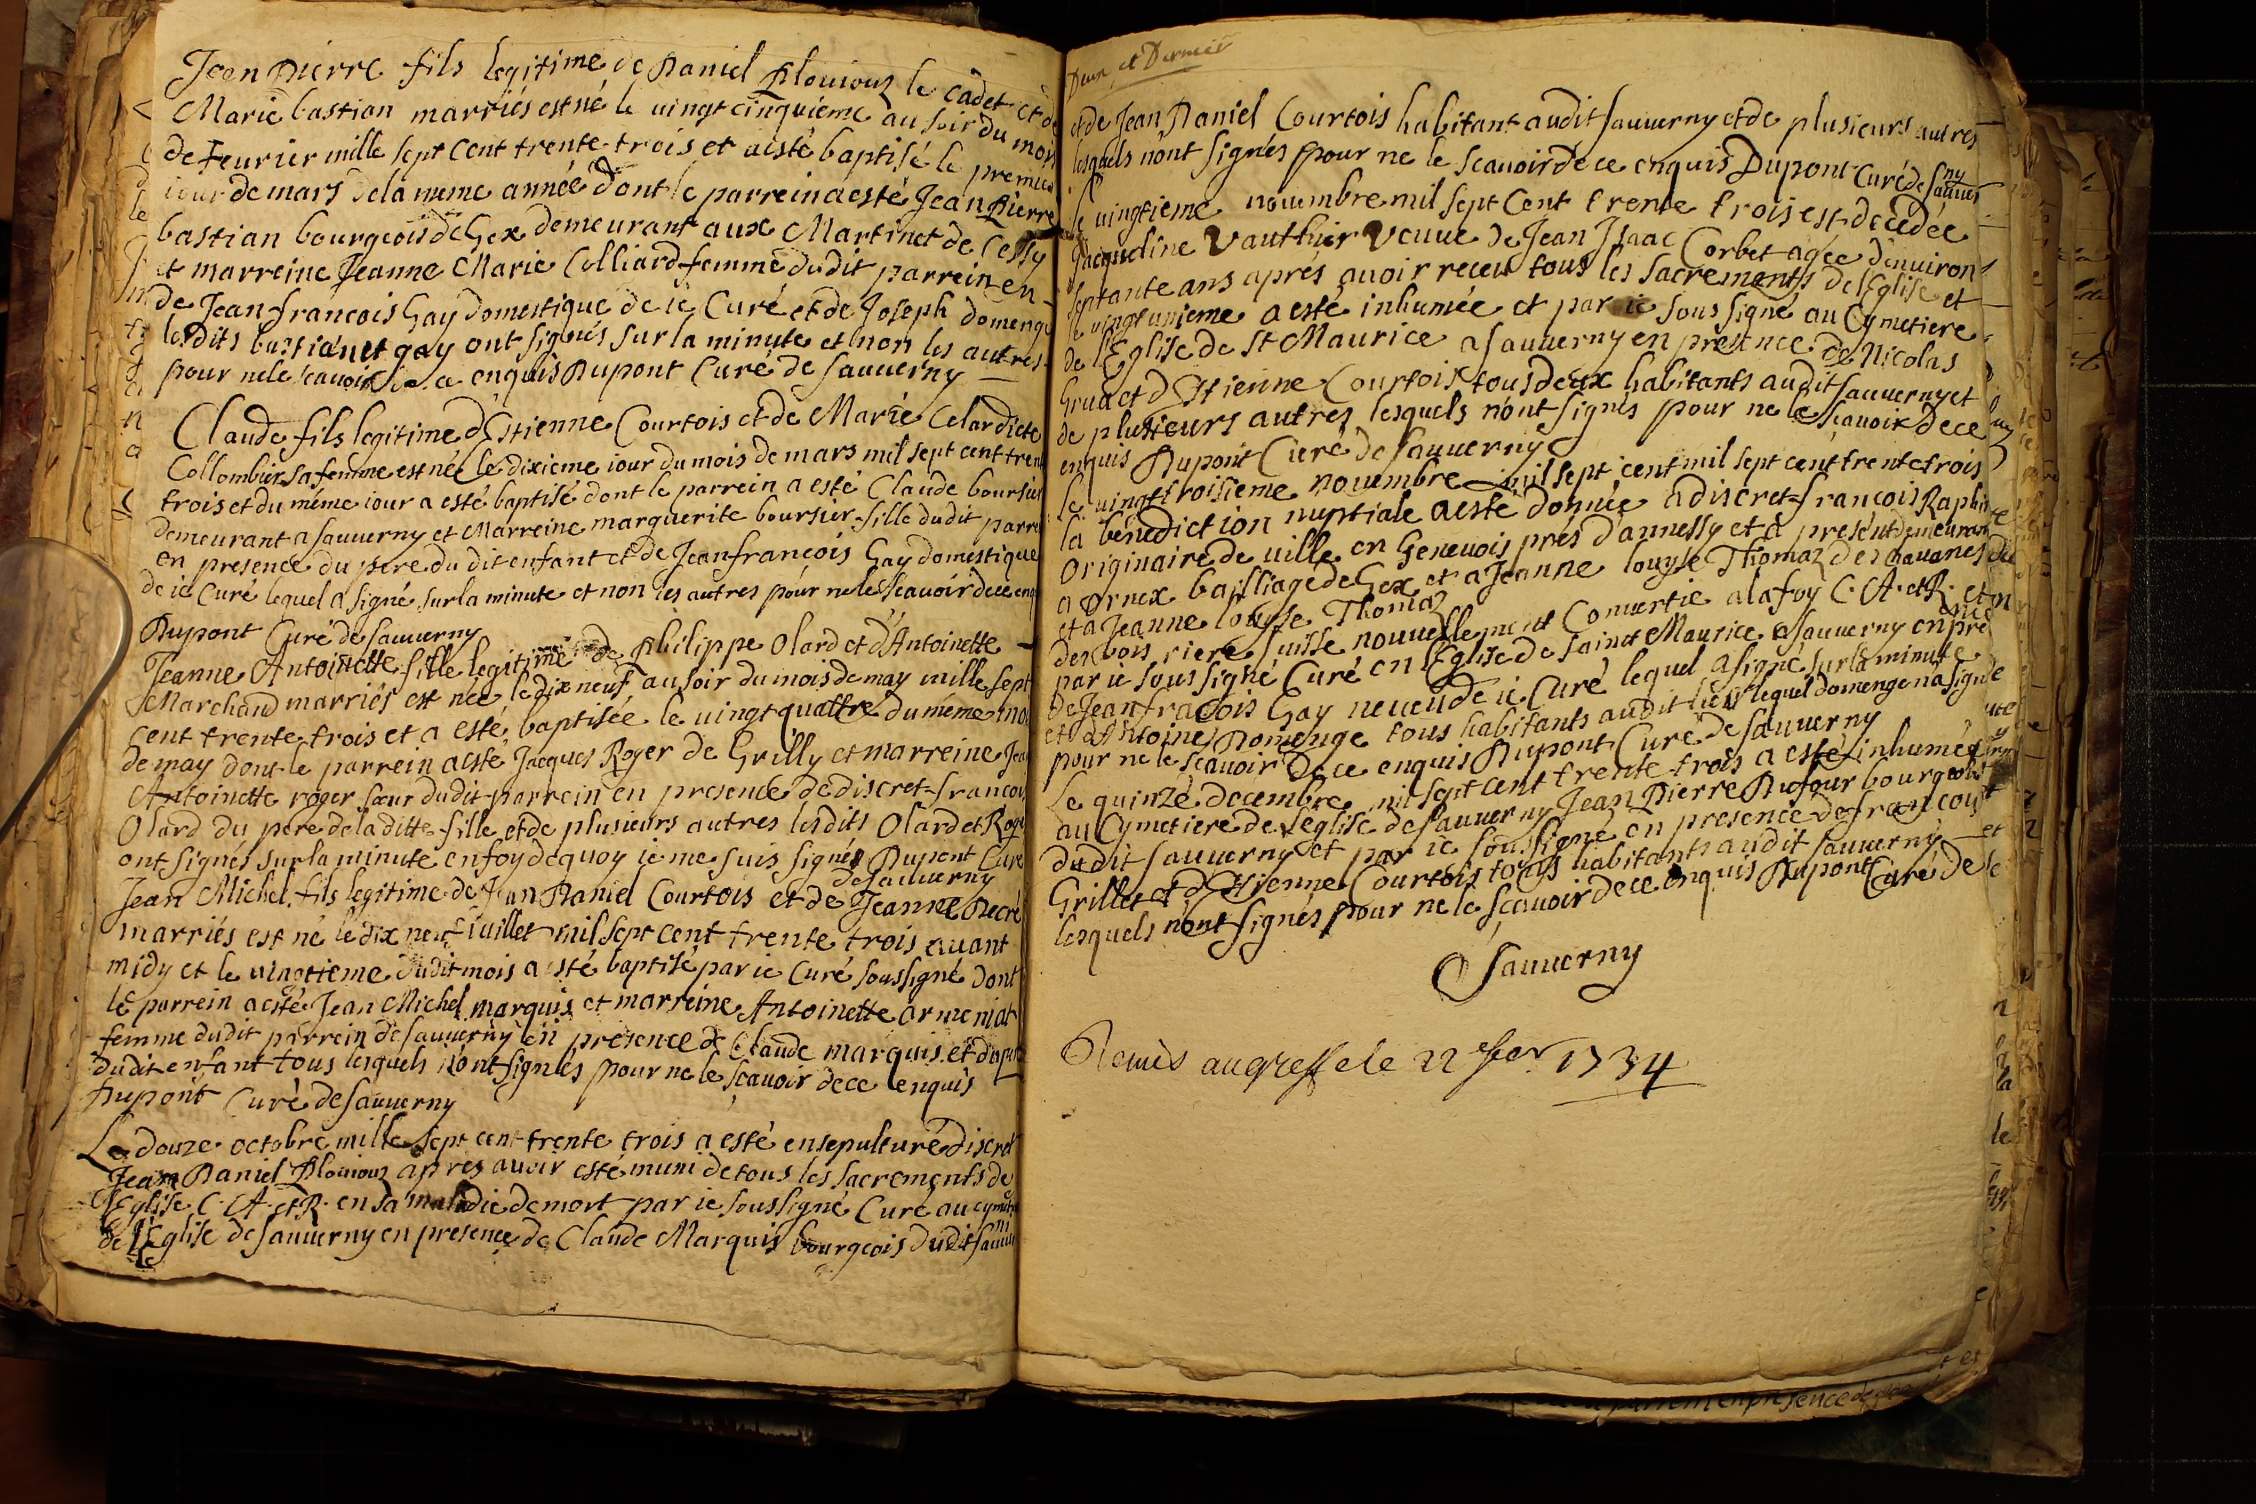 Jean Pierre fils legitime de Daniel Plouiouz le cadet et de
Marie bastian marriés est né le uingt cinquieme au soir du mois
de Feurier mille sept cent trente trois et aisté baptisé le premier
iour de mars dela meme année dont le parrein a esté Jean Pierre
bastian bourgeois de Gex demeurant aux Martinet de Cessy
et marreine Jeanne Marie Colliard femme dudit parrein en
de Jean francois Gay domestique de ie Curé et de Joseph domenge
lesdits bastian et gay ont signés sur la minute et non les autres
pour nele scauoir de ce enquis Dupont Curé de sauuerny
Claude fils legitime d'Estienne Courtois et de Marie Celardiete
Collombier sa femme est né le dixieme iour du mois de mars mil sept cent trente
trois et du méme iour a esté baptisé dont le parrein a esté Claude boursier
demeurant a sauuerny et Marreine marguerite boursier fille dudit parrein
en presence du pere du dit enfant et de Jeanfrancois Gay domestique
de ie Curé lequel a signé sur la minute et non les autres pour nele scauoir de ce enq
Dupont Curé de sauuerny
Jeanne Antoinette fille legitime de Philippe Olard et d'Antoinette
Marchand marriés est née le dixneuf au soir du mois de may mille sept
cent trente trois et a esté baptisée le uingt quattre du méme mois
de may dont le parrein a esté Jacques Roger de Grilly et marreine Jea
Antoinette roger sœur dudit parrein en presence de discret francois
Olard du pere dela ditte fille et de plusieurs autres lesdits Olard et Roger
ont signés sur la minute en foy dequoy ie me suis signés Dupont Curé
de sauuerny
Jean Michel fils legitime de Jean Daniel Courtois et de Jeanne Decré
marriés est né le dix neuf iuillet mil sept cent trente trois auant
midy et le uingtieme dudit mois a esté baptisé par ie Curé soussigné dont
le parrein a esté Jean Michel marquis et marreine Antoinette armeniat
femme dudit parrein de sauuerny en presence de Claude marquis et du pere
dudit enfant tous lesquels n'ont signés pour ne le scauoir de ce enquis
Dupont Curé de sauuerny
Le douze octobre mille sept cent trente trois a esté ensepulturé discret
Jean Daniel Plouiouz apres auoir esté muni de tous les sacrements de
l'Eglise C. A. et R. en sa maladie de mort par ie soussigné Curé au cymetie
de l'Eglise de sauuerny en presence de Claude Marquis bourgeois dudit sauuerny
Deux et Dernier
et de Jean Daniel Courtois habitant audit sauuerny et de plusieurs autres
lesquels n'ont signés pour ne le scauoir de ce enquis Dupont Curé de sauuerny
le uingtieme nouembre mil sept Cent trente trois est decedée
Jacqueline Vauthier Veuue de Jean Isaac Corbet agée d'enuiron
septante ans aprés auoir receu tous les sacrements de l'Eglise et
le uingtunieme a esté inhumée et par ie sous signé au Cymetiere
de l'Eglise de St Maurice a sauuerny en présence de Nicolas
Grua et d'Etienne Courtois tous deux habitants audit sauuerny et
de plusieurs autres lesquels n'ont signés pour ne le scauoir de ce
enquis Dupont Cieré de sauuerny
le uingttroisieme nouembre mil sept cent mil sept cent trente trois
la bénediction nuptiale a esté donnée a discret francois Raphin
originaire de uille en Geneuois prés d'annessy et a présent demeurant
a Ornex bailliage de Gex et a Jeanne louyse Thomaz des chauanes de
et a Jeanne louyse Thomaz
des bois riere suisse nouuellement Conuertie a la foy C. A. et R. et
par ie sous signé Curé en l'Eglise de sainct Maurice a sauuerny en pre
sence
de Jean fracois Gay neueu de ie Curé lequel a signé sur la minute
et d'Antoine Domenge tous habitants audit lieu lequel domenge na signé
pour ne le scauoir de ce enquis Dupont Curé de sauuerny
Le quinze decembre mil sept cent trente trois a esté inhumé
au Cymetiere de l'eglise de sauuerny Jean Pierre Dufour bourgeois
dudit sauuerny et par ie soussigné en presence de francois
Grillet et d'Etienne Courtois tous habitants audit sauuerny et
lesquels n'ont signés pour ne le scauoir de ce enquis Dupont Curé de
Sauuerny
Remis au greffe le 22e feur 1734